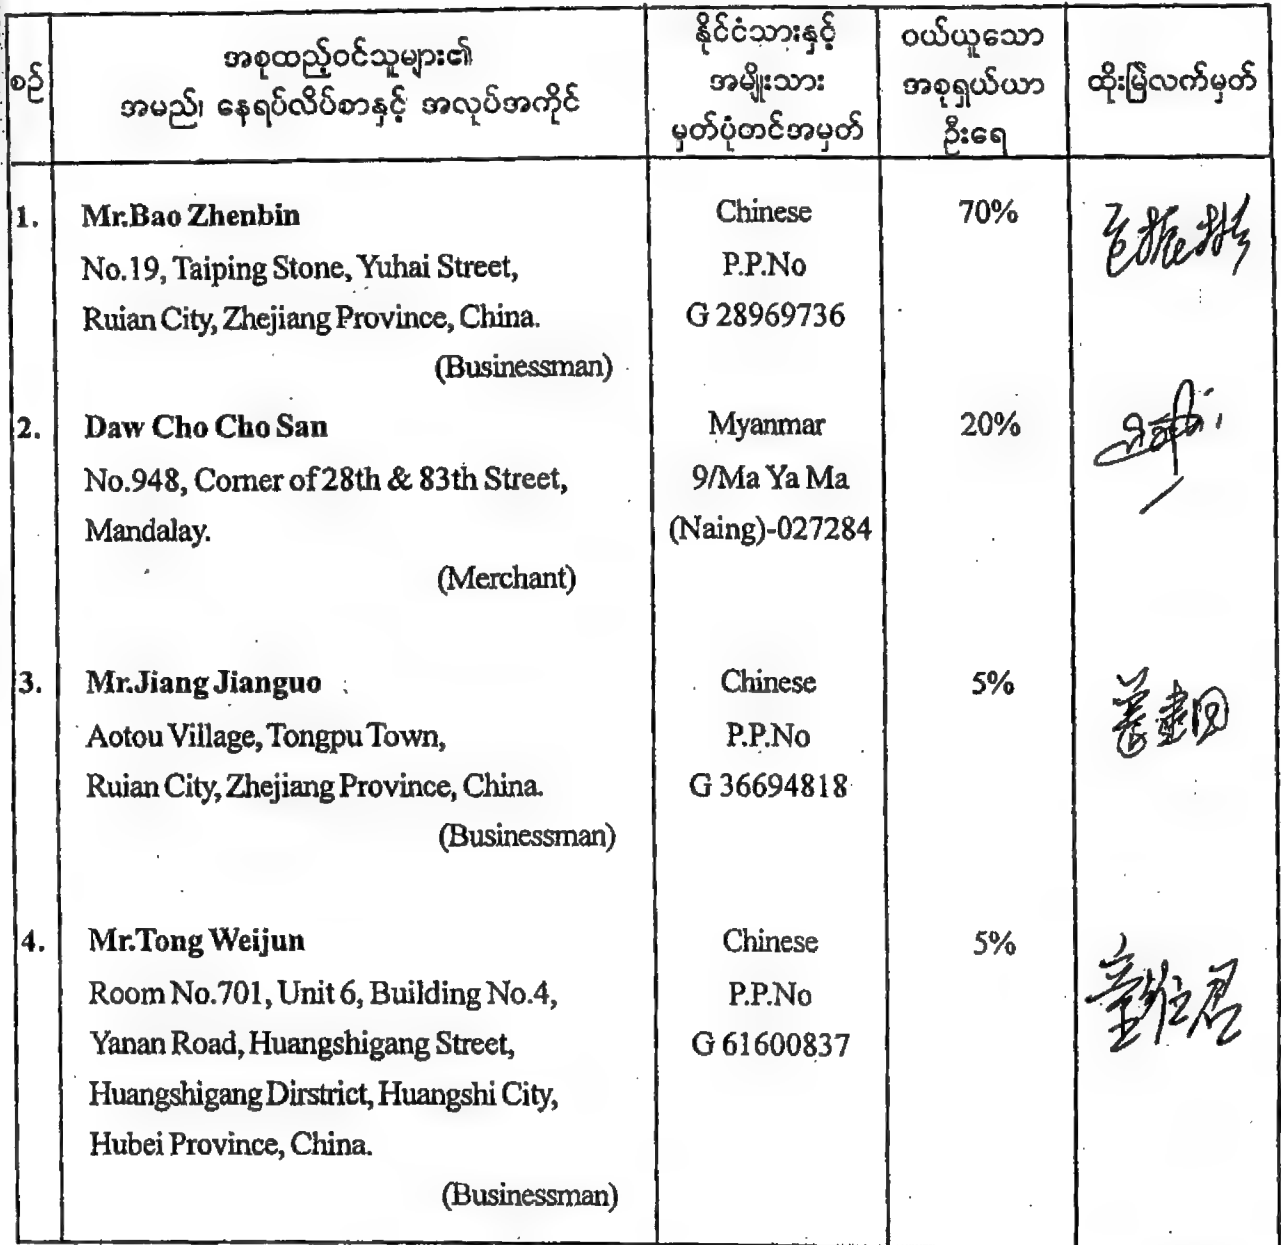 စဉ်
အစုထည့်ဝင်သူများ၏
အမည်၊ နေရပ်လိပ်စာနှင့် အလုပ်အကိုင်
နိုင်ငံသားနှင့်
အမျိုးသား
မှတ်ပုံတင်အမှတ်
ဝယ်ယူသော
အစုရှယ်ယာ
ဦးရေ
ထိုးမြဲလက်မှတ်
1.
Mr.Bao Zhenbin
No.19, Taiping Stone, Yuhai Street,
Ruian City, Zhejiang Province, China.
(Businessman)
Chinese
P.P.No
G 28969736
70%
包振彬
2.
Daw Cho Cho San
No.948, Corner of 28th & 83th Street,
Mandalay.
(Merchant)
Myanmar
9/Ma Ya Ma
(Naing)-027284
20%
3.
Mr.Jiang Jianguo
Aotou Village, Tongpu Town,
Ruian City, Zhejiang Province, China.
(Businessman)
Chinese
P.P.No
G 36694818
5%
4.
Mr.Tong Weijun
Room No.701, Unit 6, Building No.4,
Yanan Road, Huangshigang Street,
Huangshigang Dirstrict, Huangshi City,
Hubei Province, China.
(Businessman)
Chinese
P.P.No
G 61600837
5%